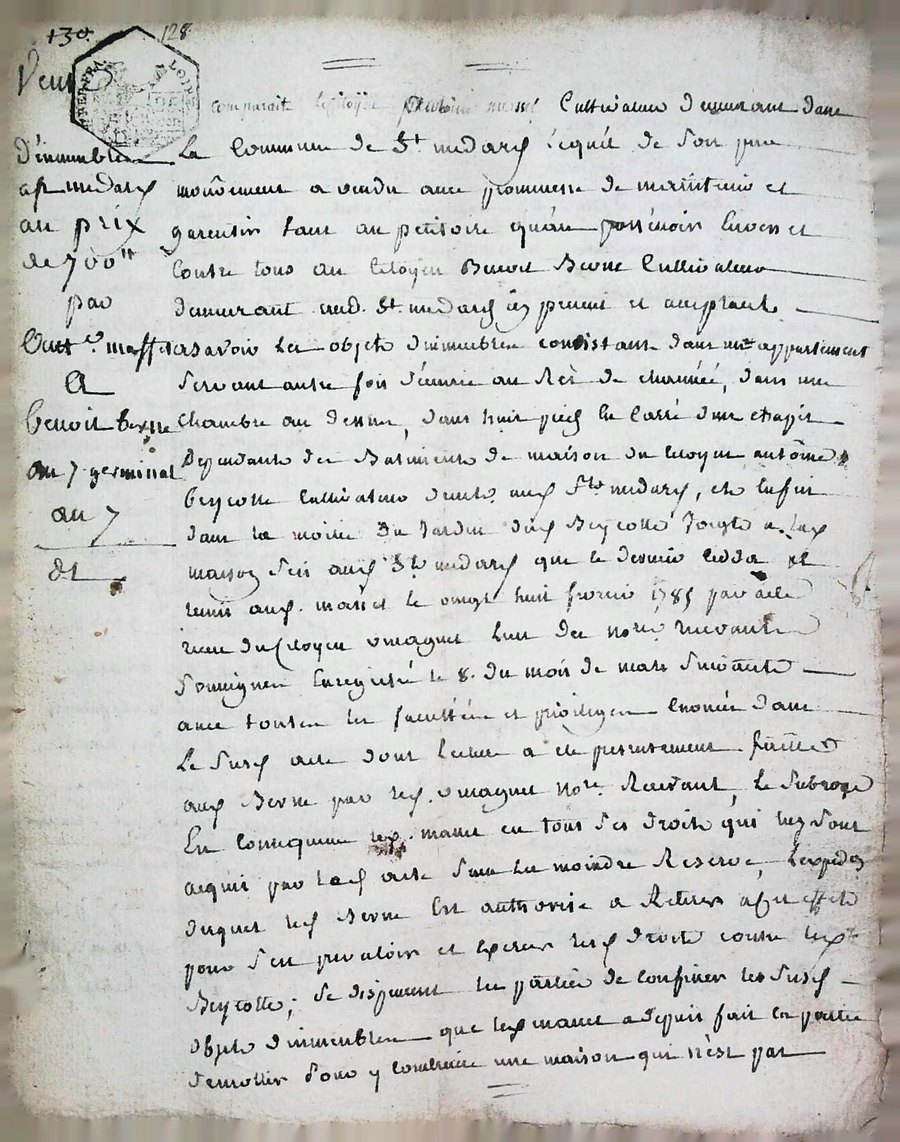 130.
128
Vente
d'immeubles
a St medard
au prix
de 700 tt
par
a
benoit besse
du 7 germinal
an 7
dt
LOIRE
comparait le citoyen cultivateur demeurant dans
La Commune de St medard lequel de son pure
mouvement a vendu avec promesse de maintenir et
garentir tant au petitoire qu'au possessoire Envers et
Contre tous au Citoyen Benoit Cultivateur
demeurant aud. St medard icy present et acceptant
asavoir les objets d'immeubles consistants dans une appartement
servant autre fois d'écurie au Rès de chaussée, dans une
chambre au dessus, dans huit pieds en carré d'un chapit
Dependants des Batiments de maison du Citoyen antoine
beycotte Cultivateur aud. St medard, et enfin
dans la moitié du Jardin dud. Beycotte a lad.
maison Sis aud. St medard que le dernier ceda et
remis aud. le vingt huit fevrier 1785 par acte
recu du Citoyen omaguet l'un des notres recevants
soussignés Enregistré le 8. du mois de mars suivant
avec toutes les facultés et privileges enoncés dans
Le susd acte dont lecture a ete presentement faitte
aud par led. omaguet notre Recevant, Le subroge
En Consequence led. en tous ses droits qui luy sont
acquis par led acte sans la moindre Reserve, L'expedon
duquel led Est authorisé a Retirer a cet effet
pour s'en prevaloir et exercer lesd droits contre led.
Beycotte; se dispensent les parties de confiner les susd
objets d'immeubles que led a depuis fait en partie
demollir pour y construire une maison qui n'est pas